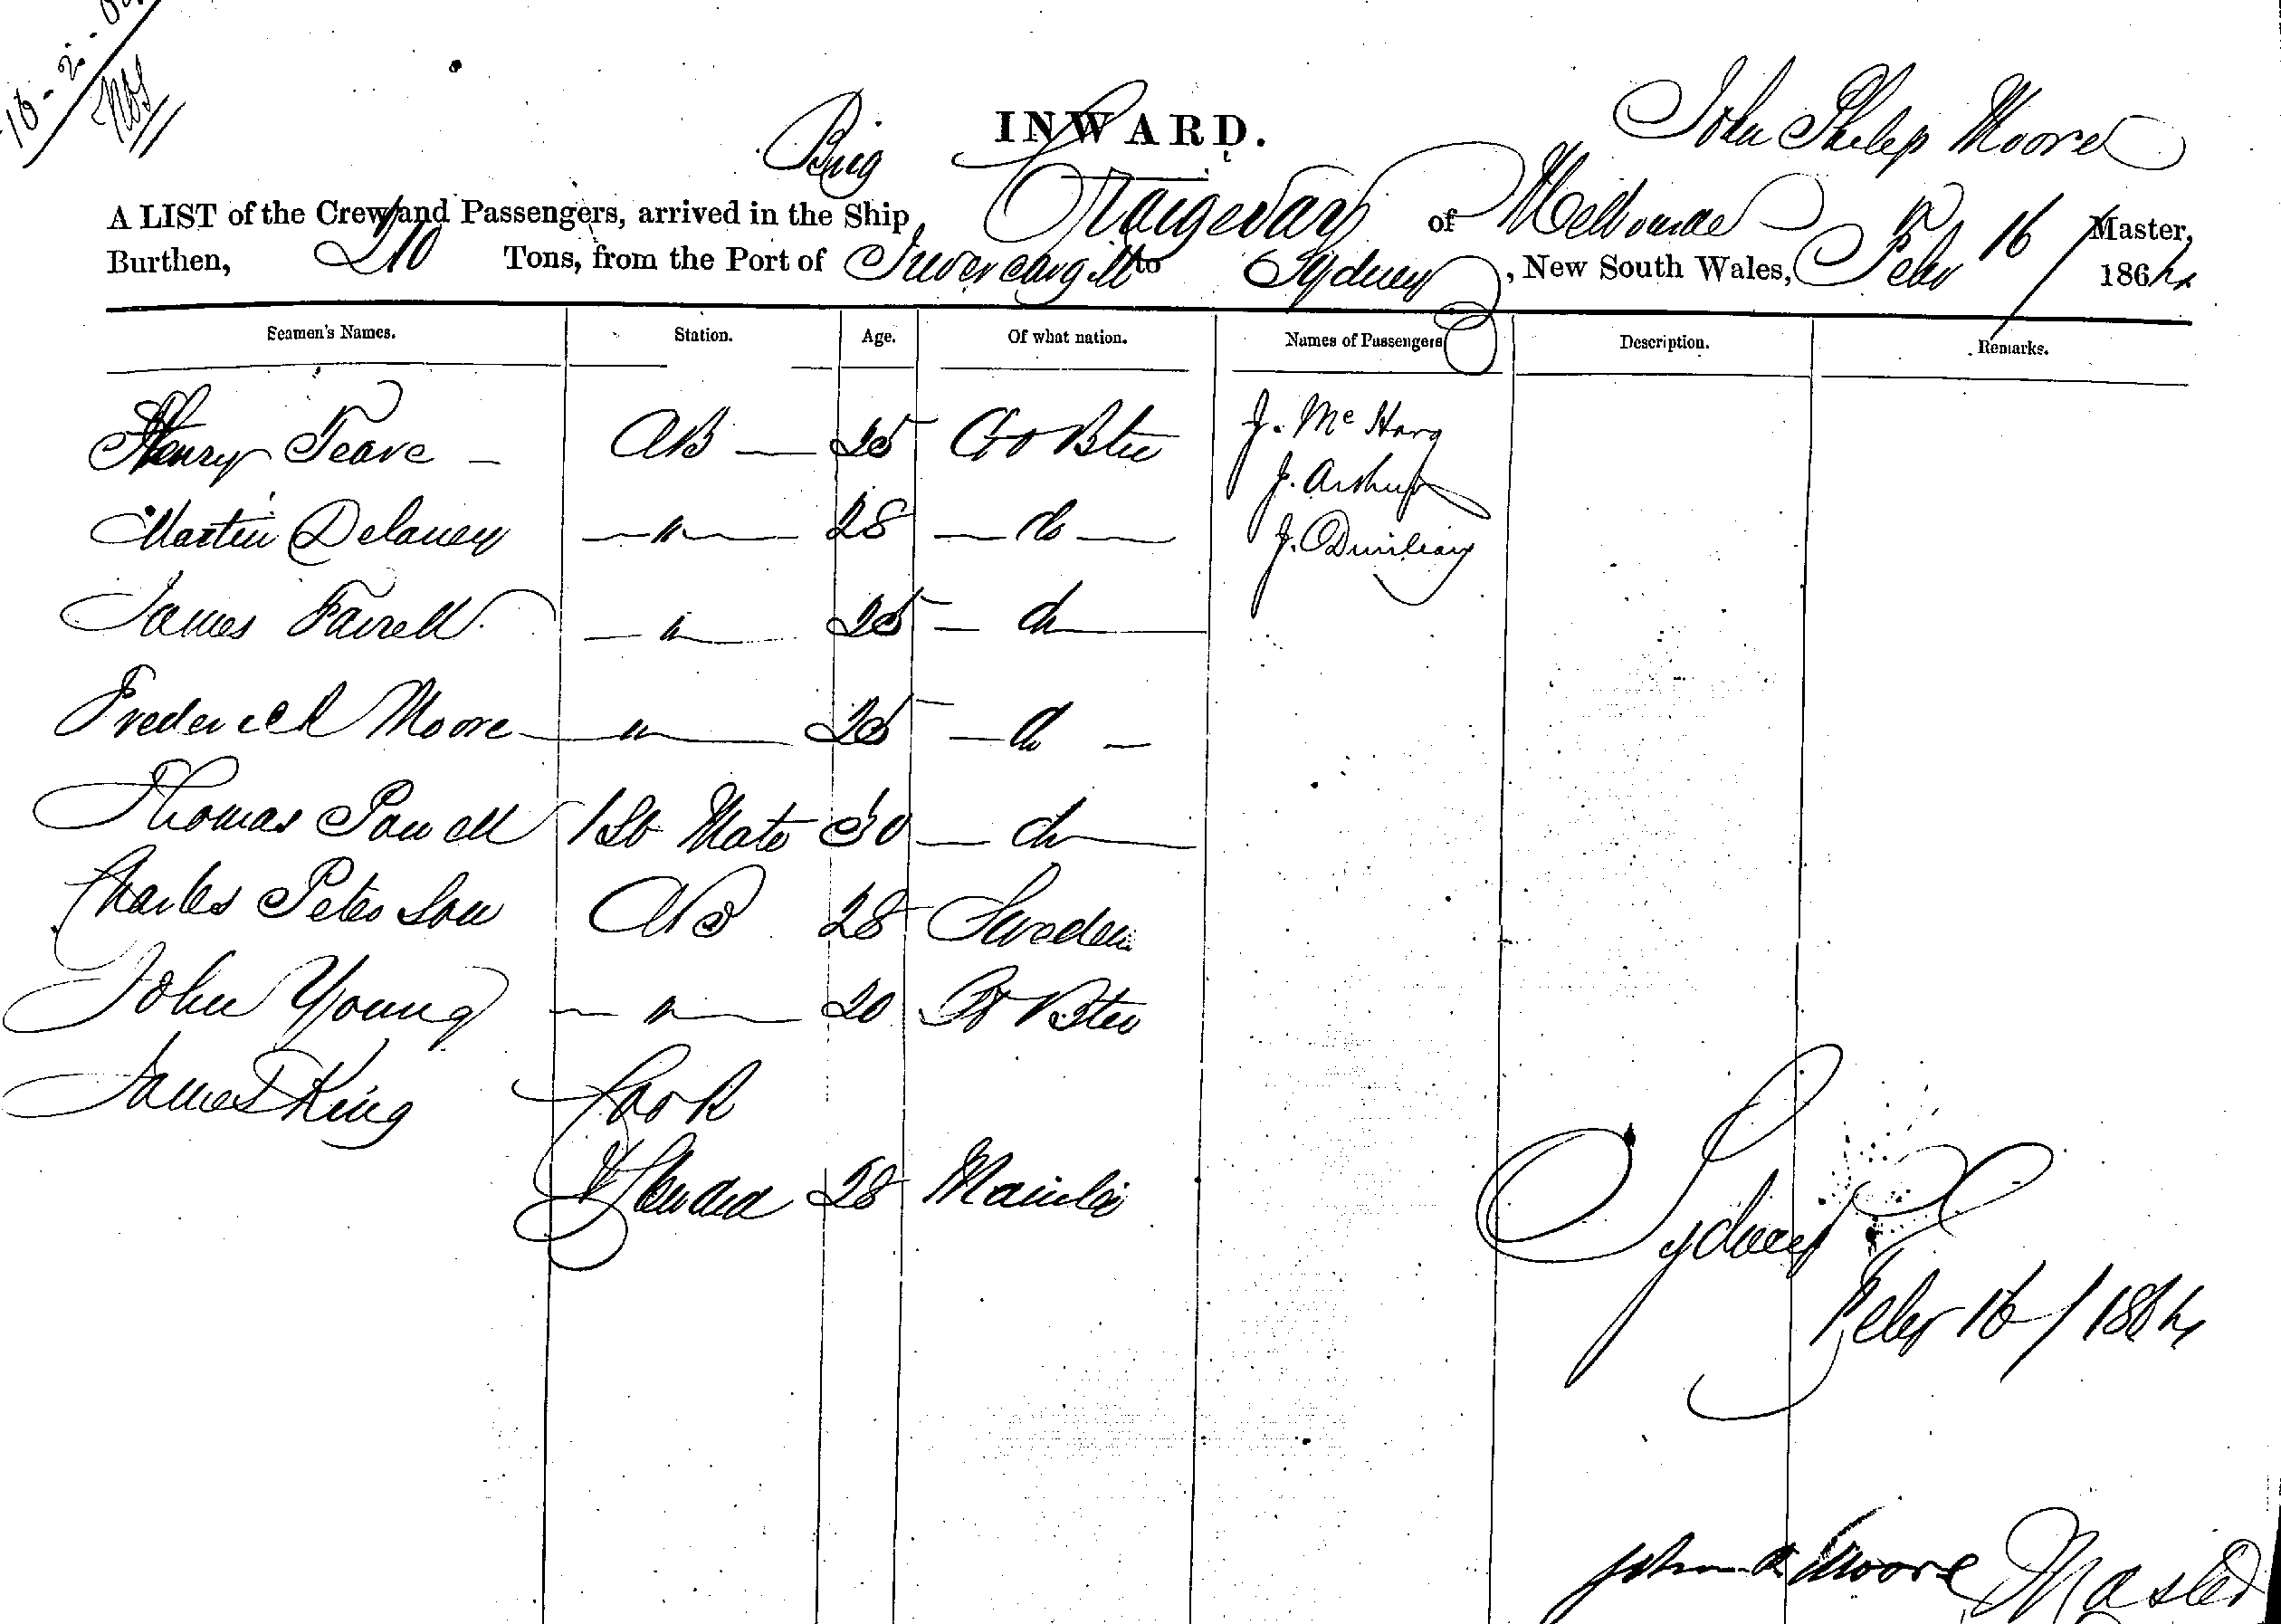 16 - 2 -
INWARD.
John Philip Moore
Brig
A LIST of the Crew and Passengers, arrived in the Ship Craigevar of Melbourne Master,
Burthen, 210 Tons, from the Port of Invercargill to Sydney, New South Wales, Feby 16 / 1864
Seamen's Names. Station. Age. Of what nation. Names of Passengers Description. Remarks.
Henry Feare - AB — 25 Gt Btn J. McHarg
J. Arthur
Martin Delaney — " — 28 — do —
James Farrell — " — 25 — do —
Frederick Moore — " — 25 — do —
Thomas Powell 1st Mate 30 — do —
Charles Peterson AB 28 Sweden
John Young — " — 20 Gt Btn
James King Cook
& Steward 28 Manila
Sydney
Feby 16 / 1864
John P Moore Master